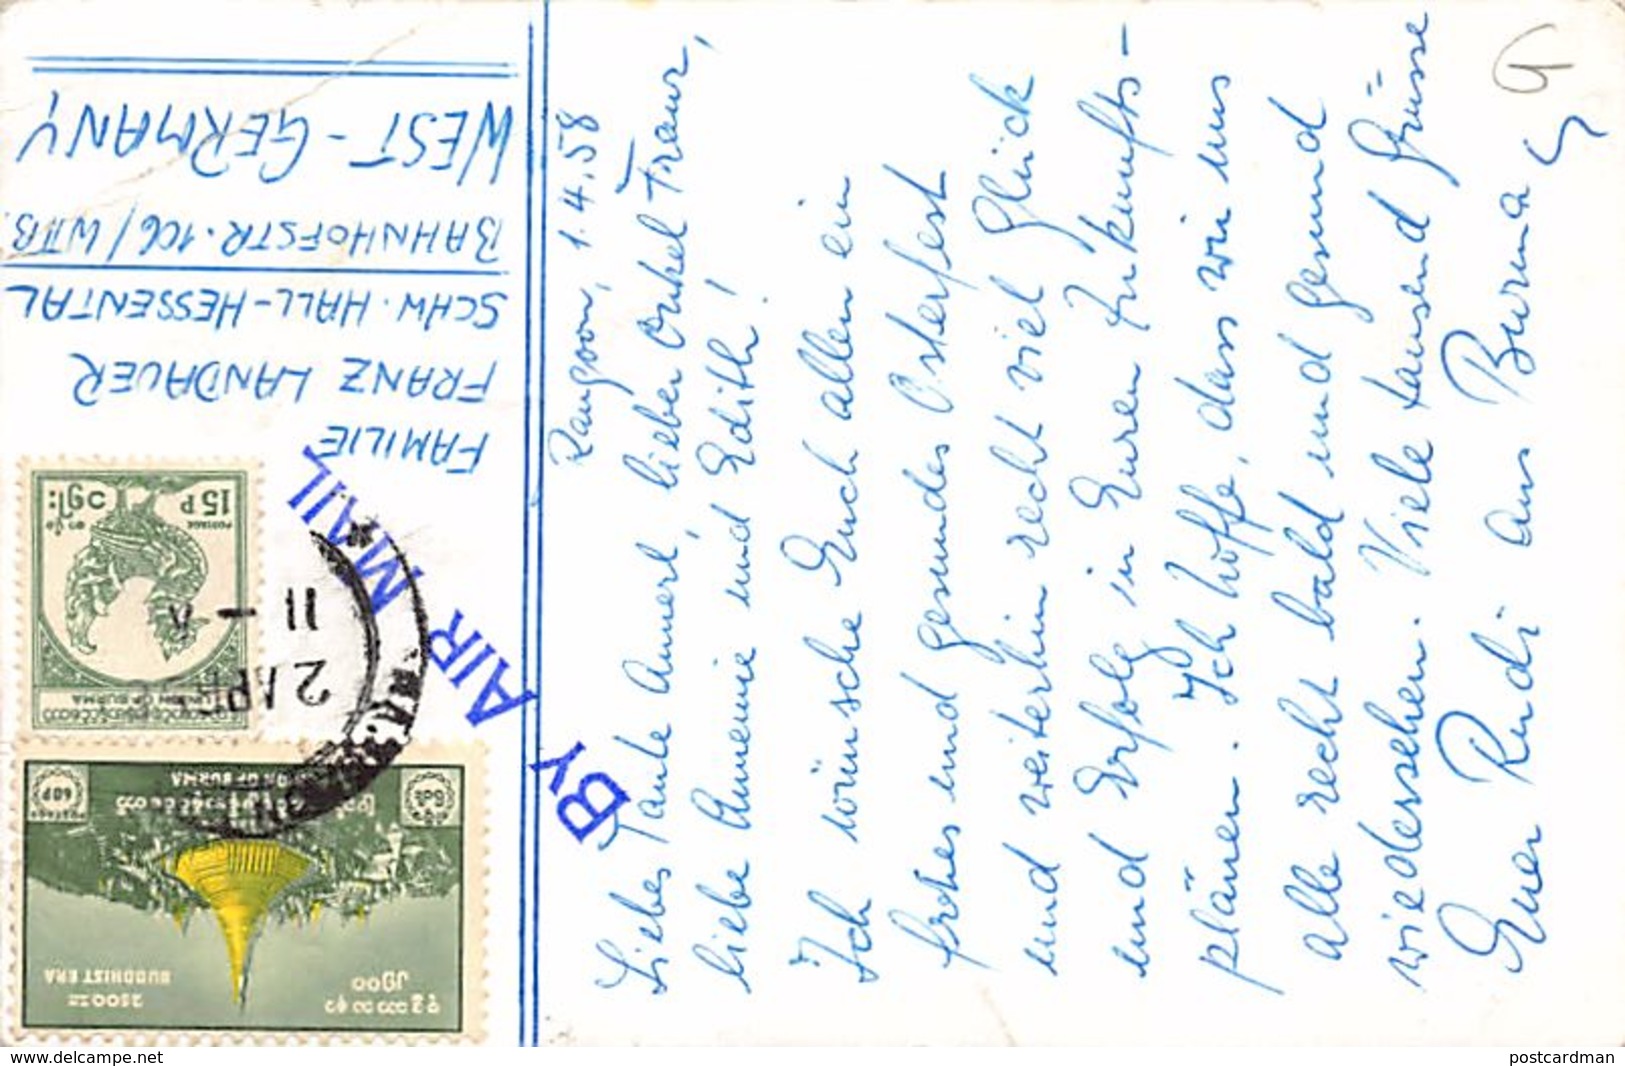 Rangoon, 1.4.58
Liebes Tante Annerl, lieber Onkel Franz,
liebe Annemie und Edith!
Ich wünsche Euch allen ein
frohes und gesundes Osterfest
und weiterhin recht viel Glück
und Erfolg in Euren Zukunfts-
plänen. Ich hoffe, dass wir uns
alle recht bald und gesund
wiedersehen. Viele tausend Grüsse
Euer Rudi aus Burma
G
BY AIR MAIL
FAMILIE
FRANZ LANDAUER
SCHW. HALL-HESSENTAL
BAHNHOFSTR. 106/WTTB.
WEST-GERMANY
UNION OF BURMA
POSTAGE
15 P
2 APR
11 -
UNION OF BURMA
POSTAGE
60P
၂၅၀၀
2500TH
BUDDHIST ERA
www.delcampe.net
postcardman